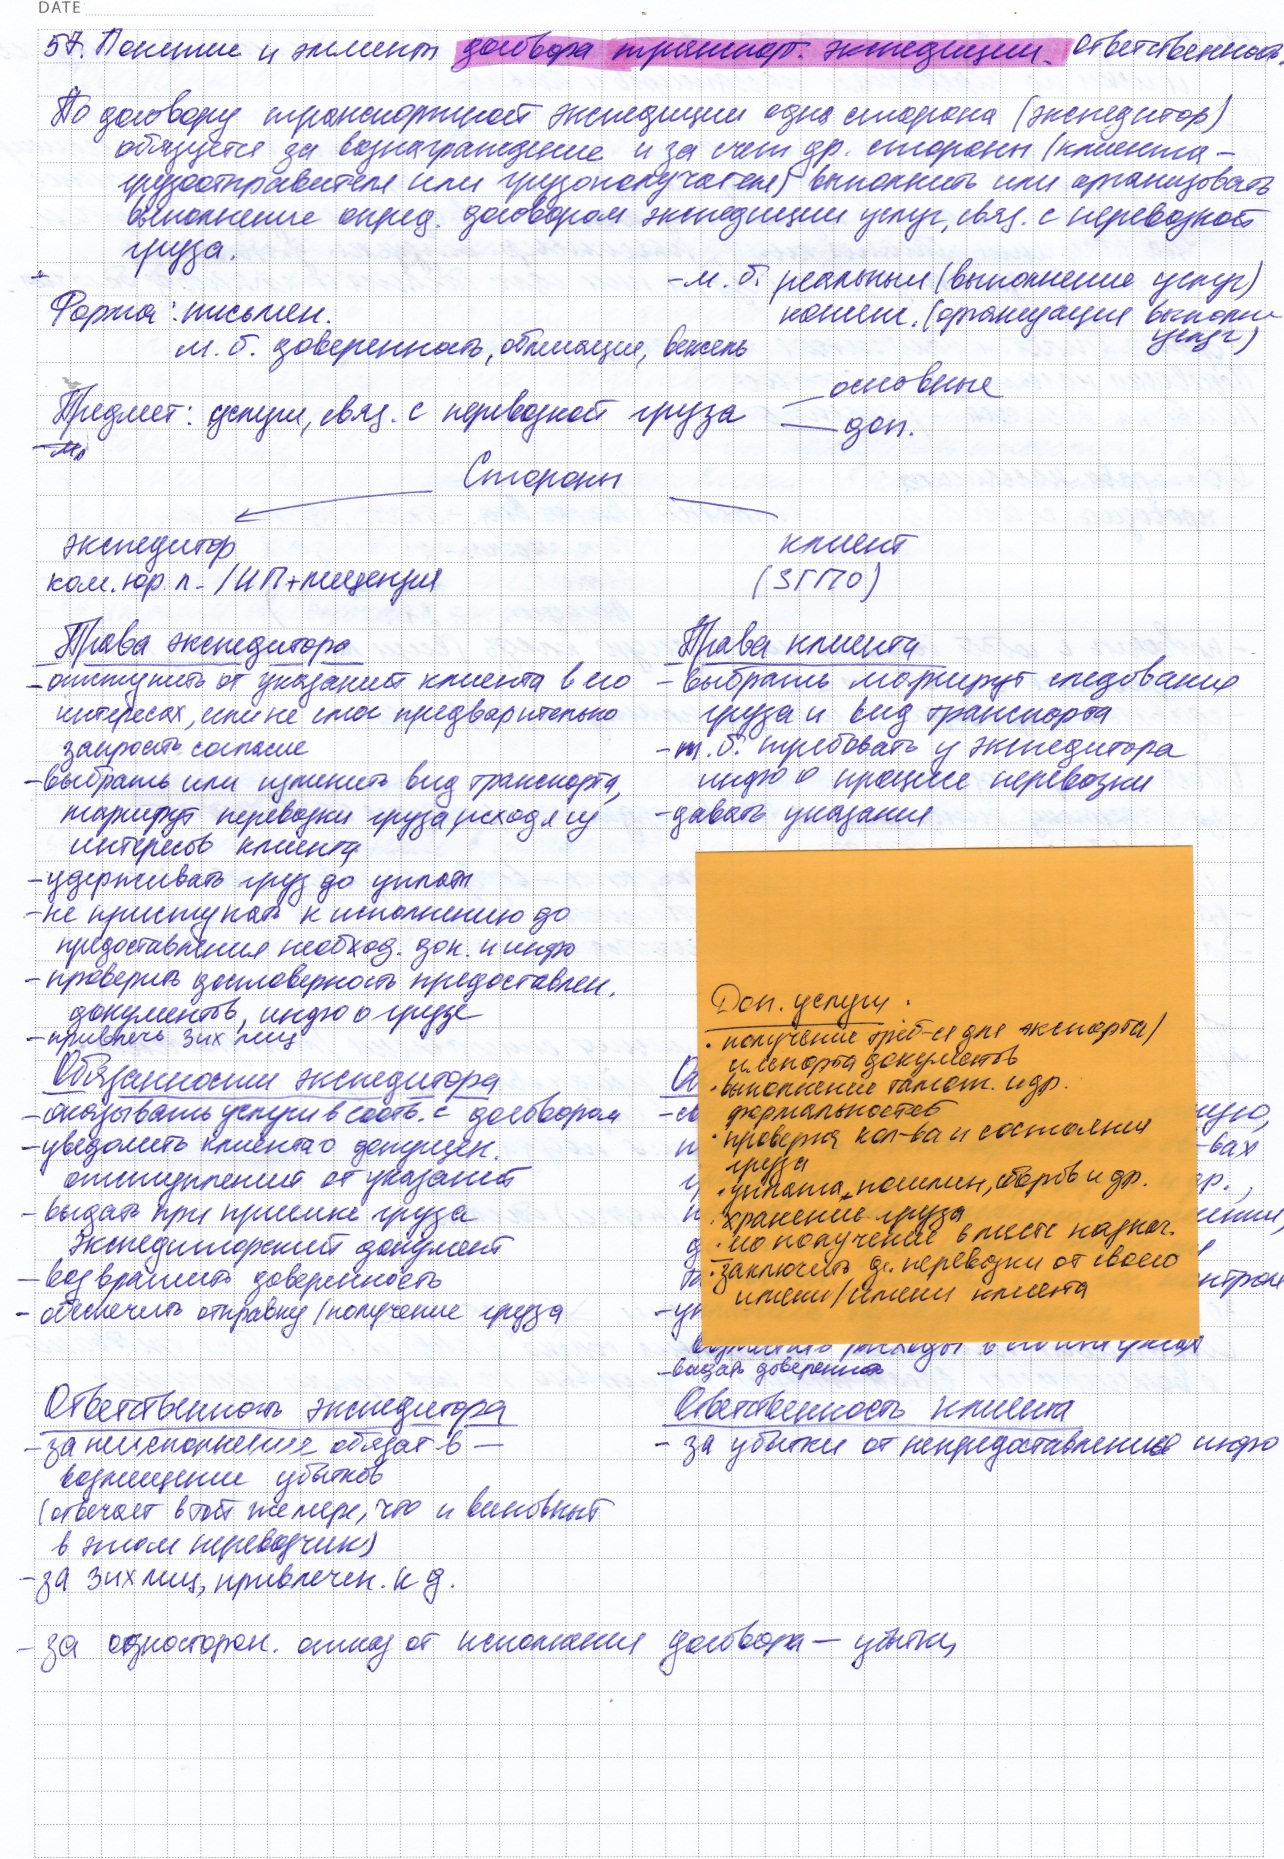 DATE
57. Понятие и элементы договора транспорт. экспедиции. Ответственность.
По договору транспортной экспедиции одна сторона (экспедитор)
обязуется за вознаграждение и за счет др. стороны (клиента –
грузоотправителя или грузополучателя) выполнить или организовать
выполнение опред. договором экспедиции услуг, связ. с перевозкой
груза.
- м. б. реальным (выполнение услуг)
Форма: письмен.
консенс. (организация выполн
услуг)
м. б. доверенность, облигация, вексель
Предмет: услуги, связ. с перевозкой груза
основные
доп.
Стороны
экспедитор
ком. юр. л. / ИП + лицензия
клиент
(ЗГПО)
Права экспедитора
- отступить от указаний клиента в его
интересах, если не смог предварительно
запросить согласие
- выбрать или изменить вид транспорта,
маршрут перевозки груза исходя из
интересов клиента
- удерживать груз до уплаты
- не приступать к исполнению до
предоставления необход. док. и инфо
- проверить достоверность предоставлен.
документов, инфо о грузе
- привлечь 3их лиц
Права клиента
- выбрать маршрут следования
груза и вид транспорта
- м. б. требовать у экспедитора
инфо о процессе перевозки
- давать указания
Обязанности экспедитора
- оказывать услуги в соотв. с договором
- уведомить клиента о допущен.
отступлений от указаний
- выдать при приемке груза
экспедиторский документ
- возвратить доверенность
- обеспечить отправку / получение груза
Доп. услуги.
· получение треб-ся для экспорта/
импорта документов
· выполнение тамож. и др.
формальностей
· проверка кол-ва и состояния
груза
· уплата пошлин, сборов и др.
· хранение груза
· его получение в месте назнач.
· заключить д. перевозки от своего
имени / имени клиента
возместить расходы в его интересах
- выдать доверенность
Ответственность экспедитора
- за неисполнение обязат-в —
возмещение убытков
(отвечает в той же мере, что и виновный
в этом перевозчик)
- за 3их лиц, привлечен. к д.
Ответственность клиента
- за убытки от непредоставления инфо
- за односторон. отказ от исполнения договора – убытки